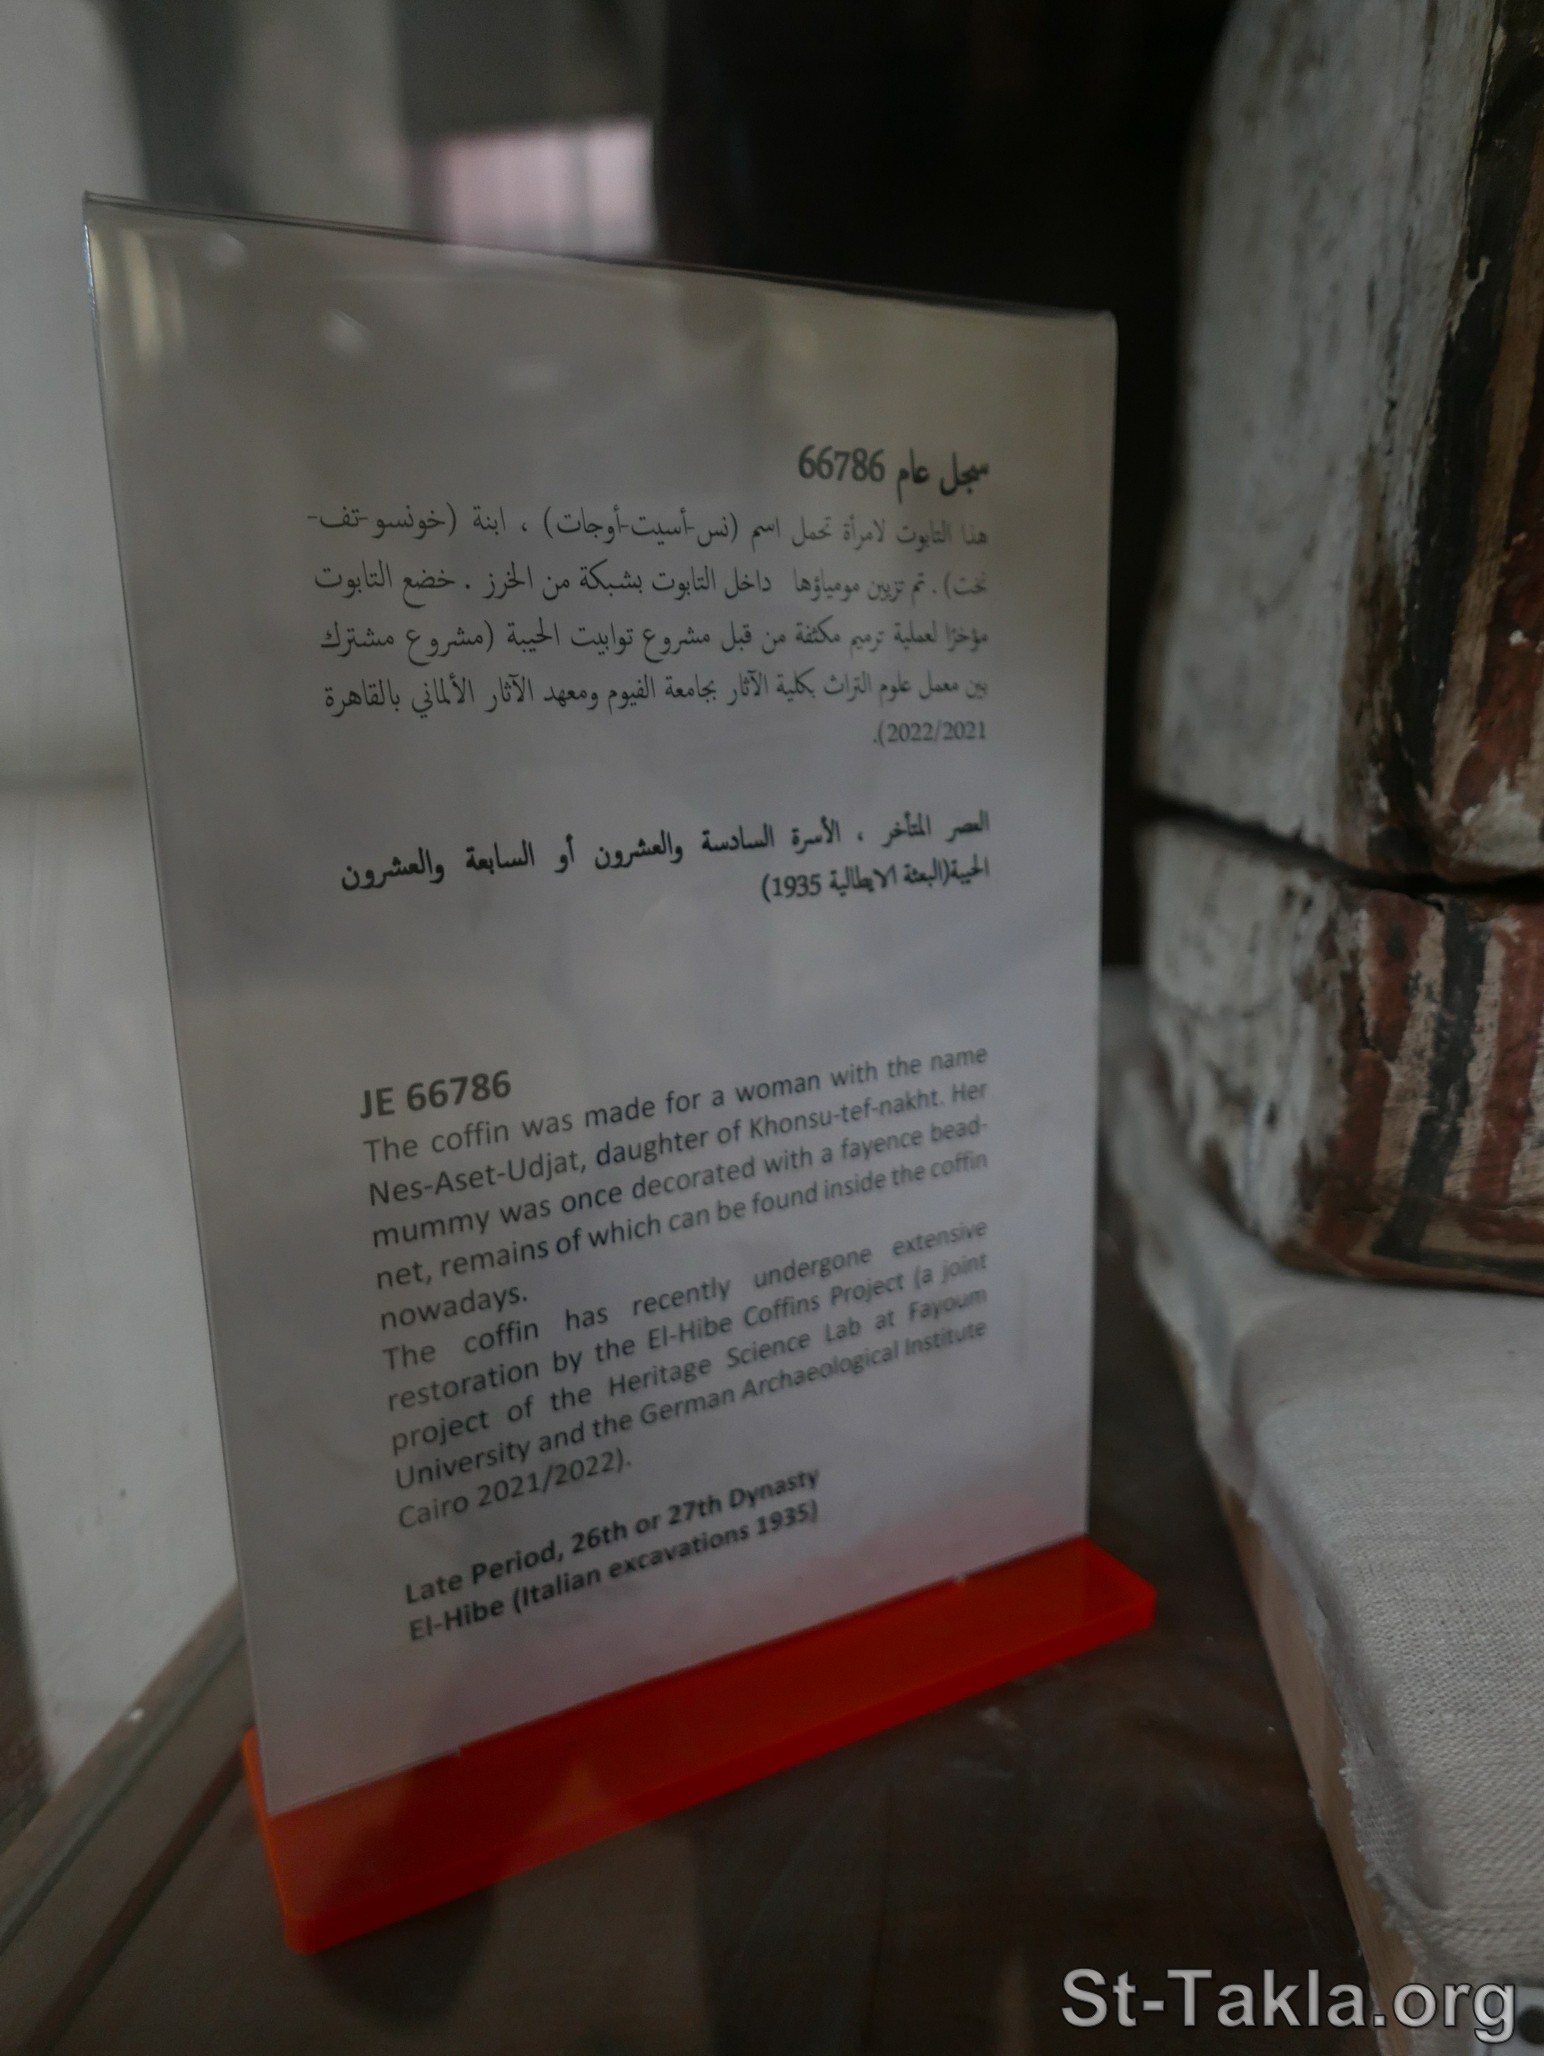 سجل عام 66786
هذا التابوت لامرأة تحمل اسم (نس-أسيت-أوجات) ، ابنة (خونسو-تف-
نخت) . تم تزيين مومياؤها داخل التابوت بشبكة من الخرز . خضع التابوت
مؤخرًا لعملية ترميم مكثفة من قبل مشروع توابيت الحيبة (مشروع مشترك
بين معمل علوم التراث بكلية الآثار بجامعة الفيوم ومعهد الآثار الألماني بالقاهرة
2022/2021).
العصر المتأخر ، الأسرة السادسة والعشرون أو السابعة والعشرون
الحيبة(البعثة الايطالية 1935)
JE 66786
The coffin was made for a woman with the name
Nes-Aset-Udjat, daughter of Khonsu-tef-nakht. Her
mummy was once decorated with a fayence bead-
net, remains of which can be found inside the coffin
nowadays.
The coffin has recently undergone extensive
restoration by the El-Hibe Coffins Project (a joint
project of the Heritage Science Lab at Fayoum
University and the German Archaeological Institute
Cairo 2021/2022).
Late Period, 26th or 27th Dynasty
El-Hibe (Italian excavations 1935)
St-Takla.org